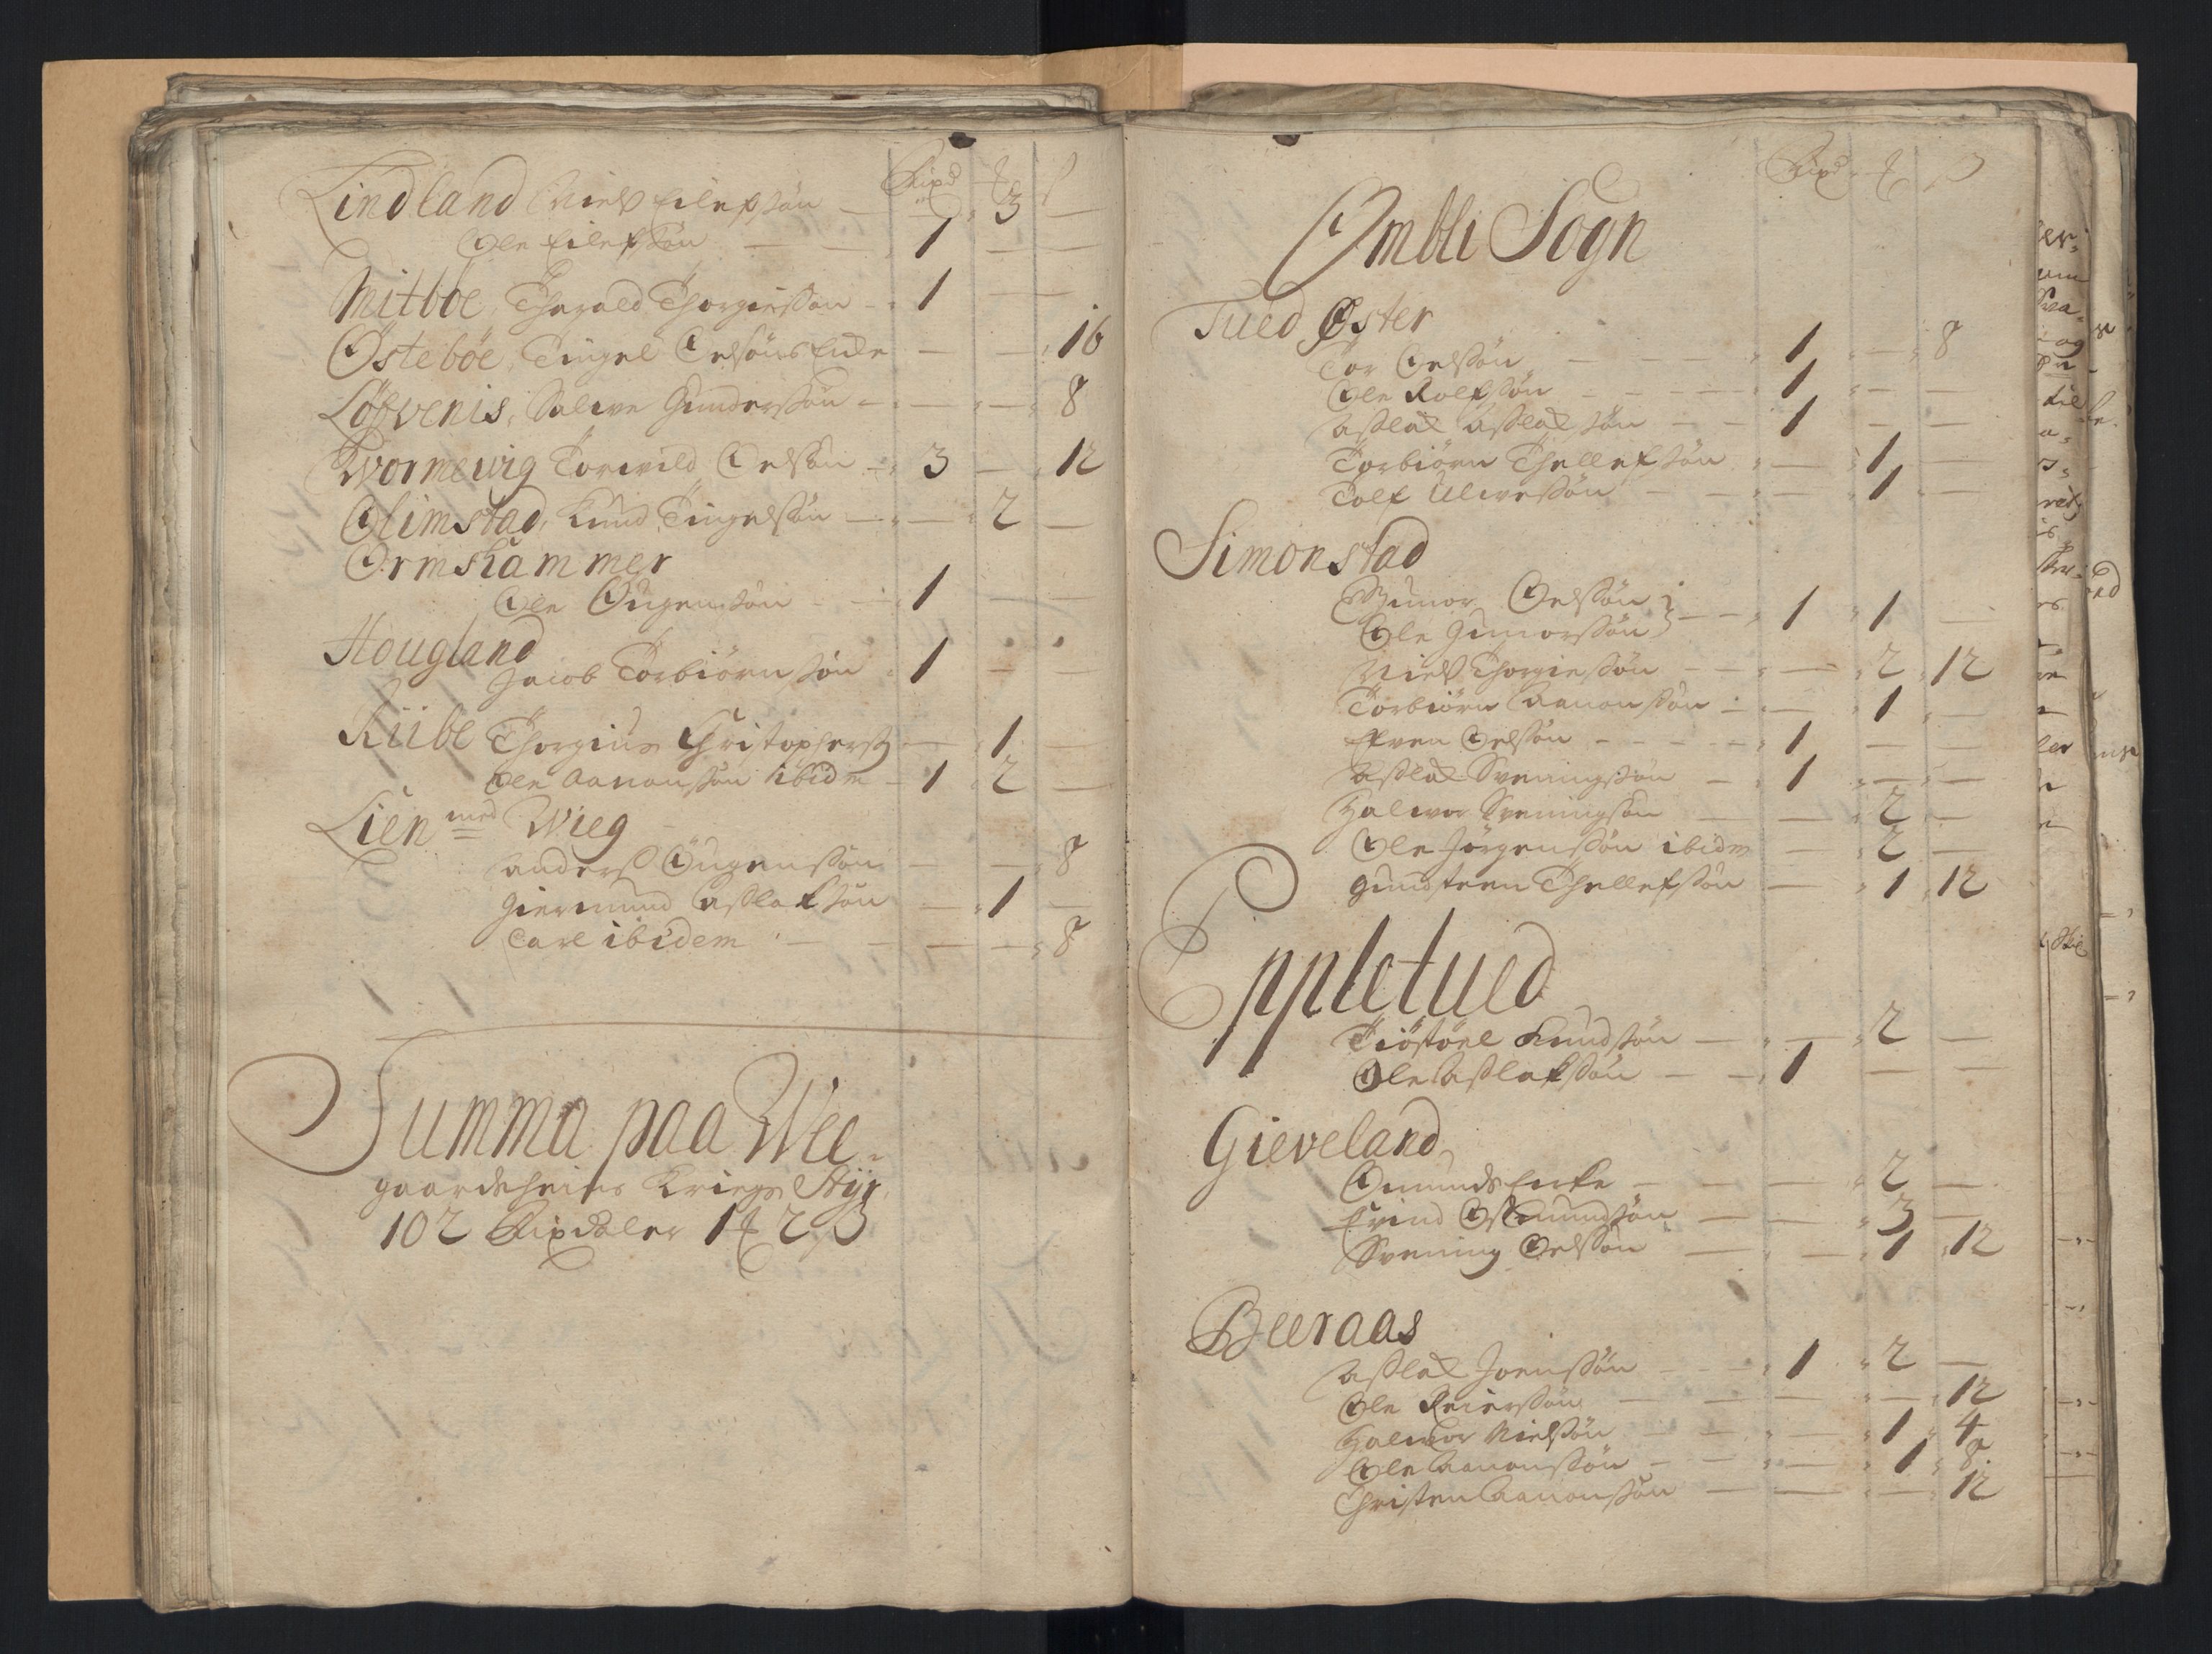 Rixd ʒ ß
Lindland Niels Eilefsøn — 3 —
Ole Eilefsøn — 1 — —
Mitboe, Tharald Thorgiersøn — 1 — —
Østebøe, Tingel Oelsøns Encke — — 16
Løfvenis, Salwe Gundersøn — — — 8
Wormewig Torwild Oelsøn — 3 — 12
Olimstad, Knud Tingelsøn — — 2 —
Ormshammer
Ole Øugensøn — 1 — —
Hougland
Jacob Torbiørnsøn 1 — —
Kiibe Thorgius Christophers — 1 —
Ole Aanonsøn ibidm — 1 2 —
Lien med Wieg
Anders Øugensøn — — 8
Giermund Aslaksøn — 1 —
Carl ibidem — — — 8
Summa paa Wee-
gaardsheies Kriigs Styr
102 Rixdaler 1 ʒ 2 ß
Rixd ʒ ß
Ombli Sogn
Tued Øster
Tor Oelsøn — 1 — 8
Ole Rolfsøn — 1 — —
Aslak Aslaksøn — 1 — —
Torbiørn Thellefsøn — 1 —
Tolf Ulwesøn — — 1 —
Simonstad
Gunor Oelsøn
Ole Gunorsøn — 1 1 —
Niels Thorgiesøn — — 2 12
Torbiørn Aanonsøn — 1 —
Efven Oelsøn — 1 — —
Aslak Sveningsøn — 1 — —
Halwor Sveningsøn — — 2 —
Ole Jørgensøn ibidm — 2 —
Gundsteen Thellefsøn — 1 12
Eppletued
Tiøstøel Knudsøn — — 2 —
Ole Aslaksøn — 1 — —
Gieveland
Omunds Encke — — 2 —
Evind Osmundsøn — — 3 —
Svening Oelsøn — — 1 12
Beeraas
Aslak Joensøn — 1 2 —
Ole Reiersøn — — — 12
Halwor Nielsøn — — 1 4
Ole Aanonsøn — — 1 8
Christen Aanonsøn — — — 12